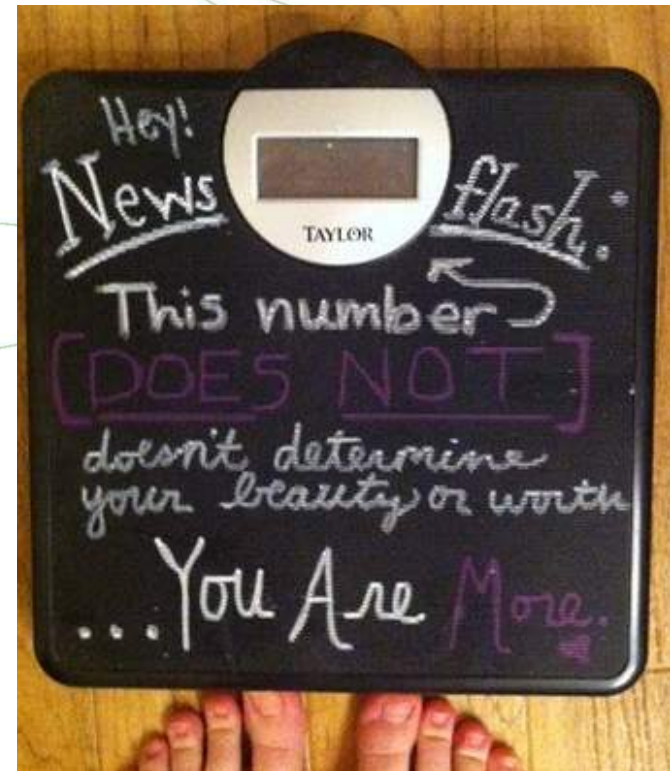 Hey!
News flash:
TAYLOR
This number
[DOES NOT]
doesn't determine
your beauty or worth
...You Are More.